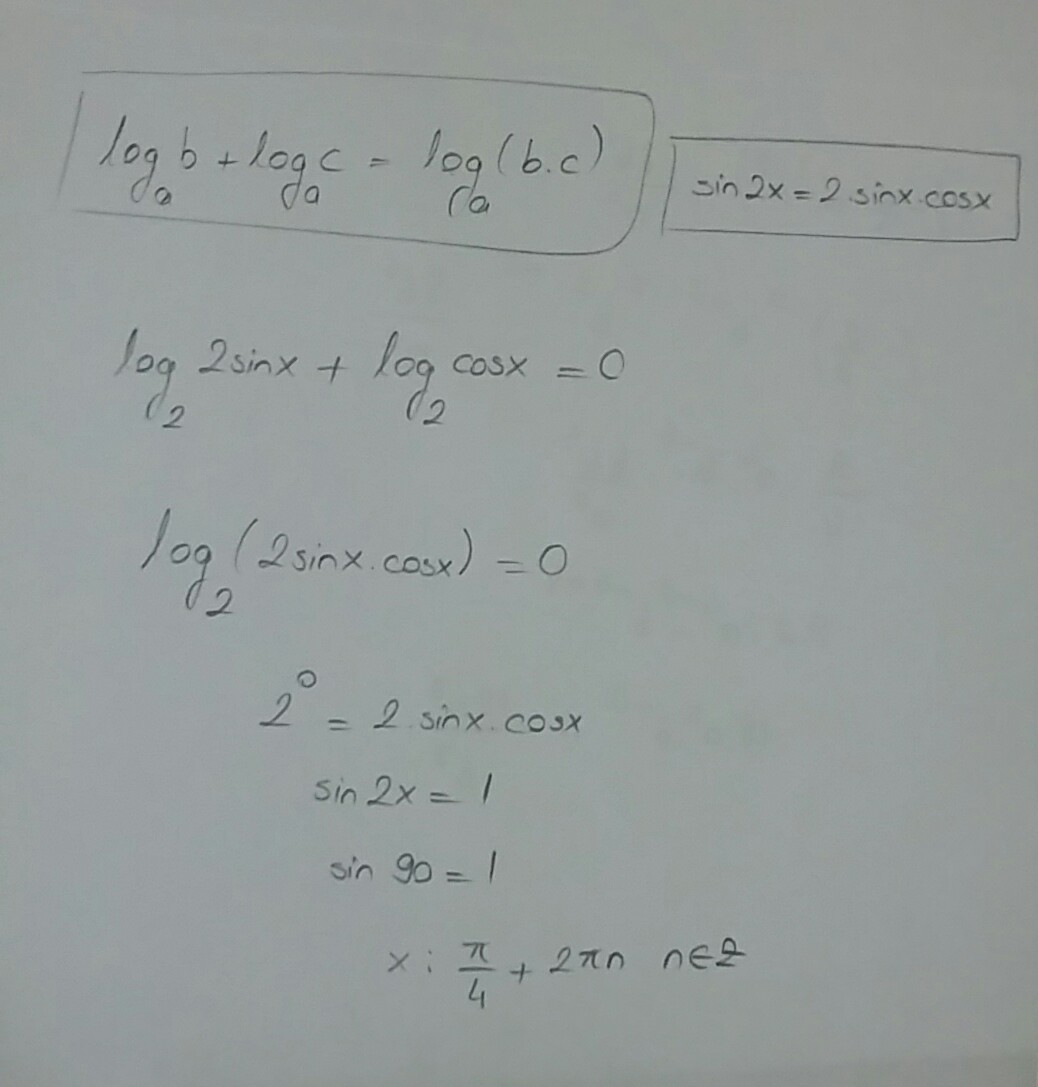 log_a b + log_a c = log_a (b.c)
sin 2x = 2.sinx.cosx
log_2 2sinx + log_2 cosx = 0
log_2 (2sinx.cosx) = 0
2^0 = 2.sinx.cosx
sin 2x = 1
sin 90 = 1
x : π/4 + 2πn n∈Z